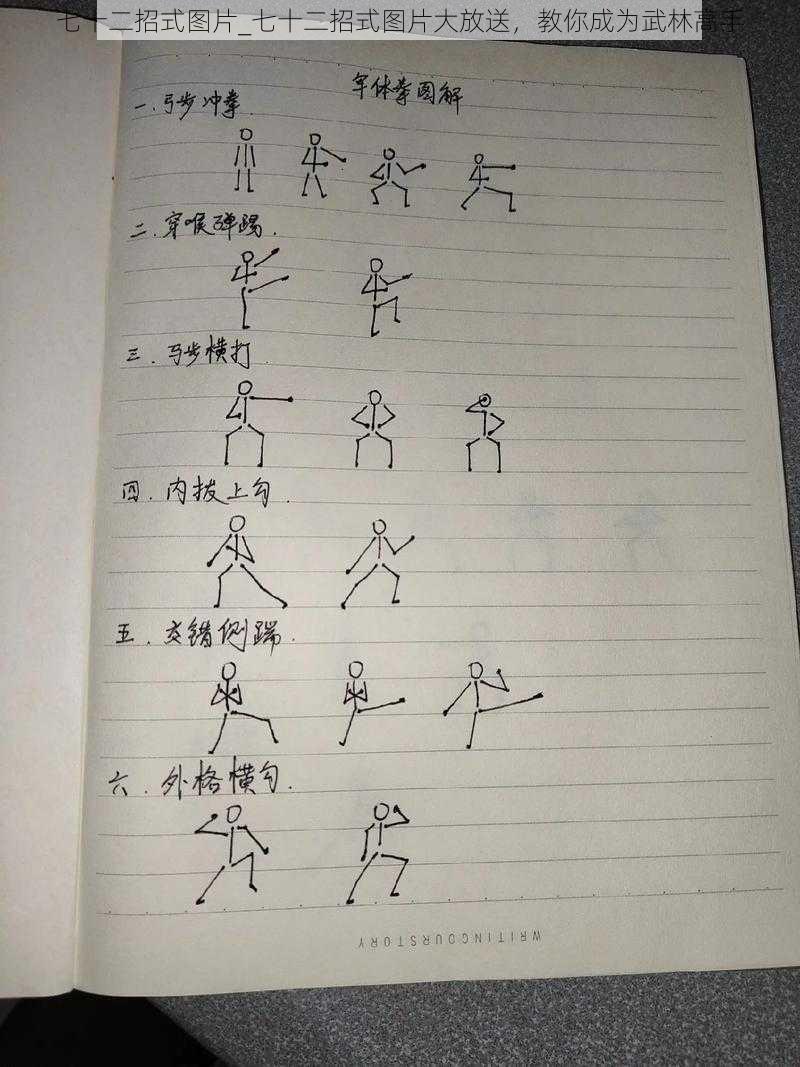 七十二招式图片_七十二招式图片大放送，教你成为武林高手
军体拳图解
一.弓步冲拳.
二.穿喉弹踢.
三.马步横打
四.内拨上勾.
五.交错侧踹.
六.外格横勾.
WRITINGOURSTORY